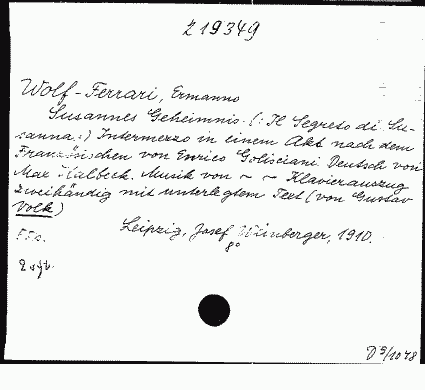 Z 19349
Wolf-Ferrari, Ermanno
Susannes Geheimnis. (: Il Segreto di Su-
sanna :) Intermezzo in einem Akt nach dem
Französischen von Enrico Golisciani Deutsch von
Max Kalbeck. Musik von ~ ~ Klavierauszug
zweihändig mit unterlegtem Text (von Gustav
Volk)
Leipzig, Josef Weinberger, 1910.
8°